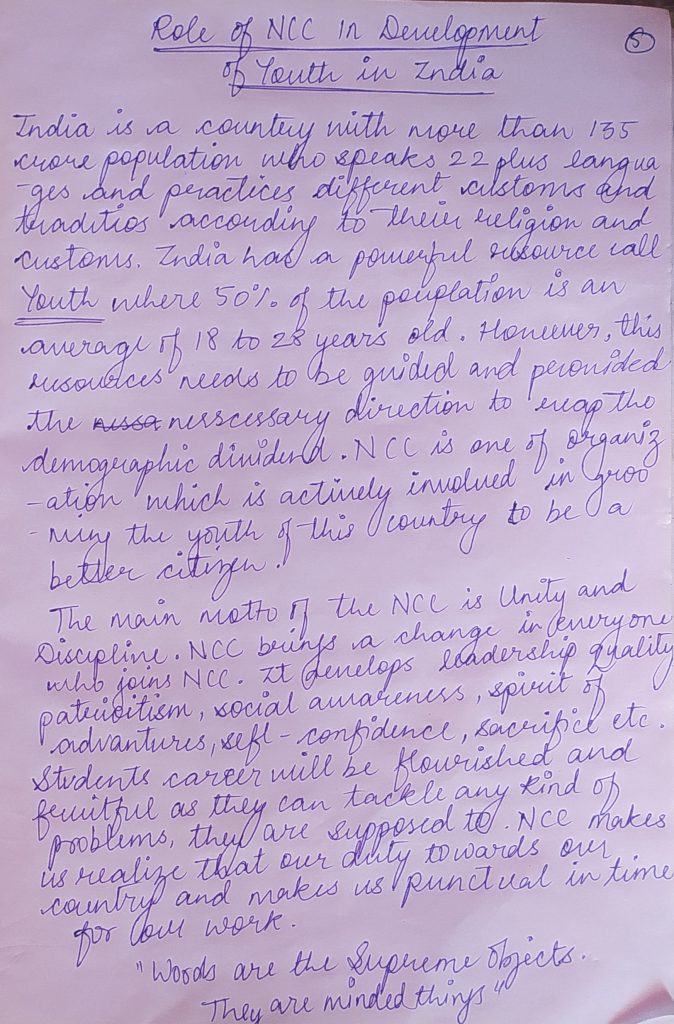 Role of NCC in Development
of Youth in India
5
India is a country with more than 135
crore population who speaks 22 plus langua
-ges and practices different customs and
traditios according to their religion and
customs. India has a powerful resource call
Youth where 50% of the pouplation is an
average of 18 to 28 years old. However, this
resources needs to be guided and provided
the nessa nesscessary direction to reap the
demographic dividend. NCC is one of organiz
-ation which is actively involved in groo
-ming the youth of this country to be a
better citizen.
The main motto of the NCC is Unity and
Discipline. NCC brings a change in everyone
who joins NCC. It develops leadership quality
patrioitism, social awareness, spirit of
advantures, sefl-confidence, sacrifice etc.
Students career will be flourished and
fruitful as they can tackle any kind of
problems, they are supposed to. NCC makes
us realize that our duty towards our
country and makes us punctual in time
for our work.
"Words are the Supreme Objects.
They are minded things"